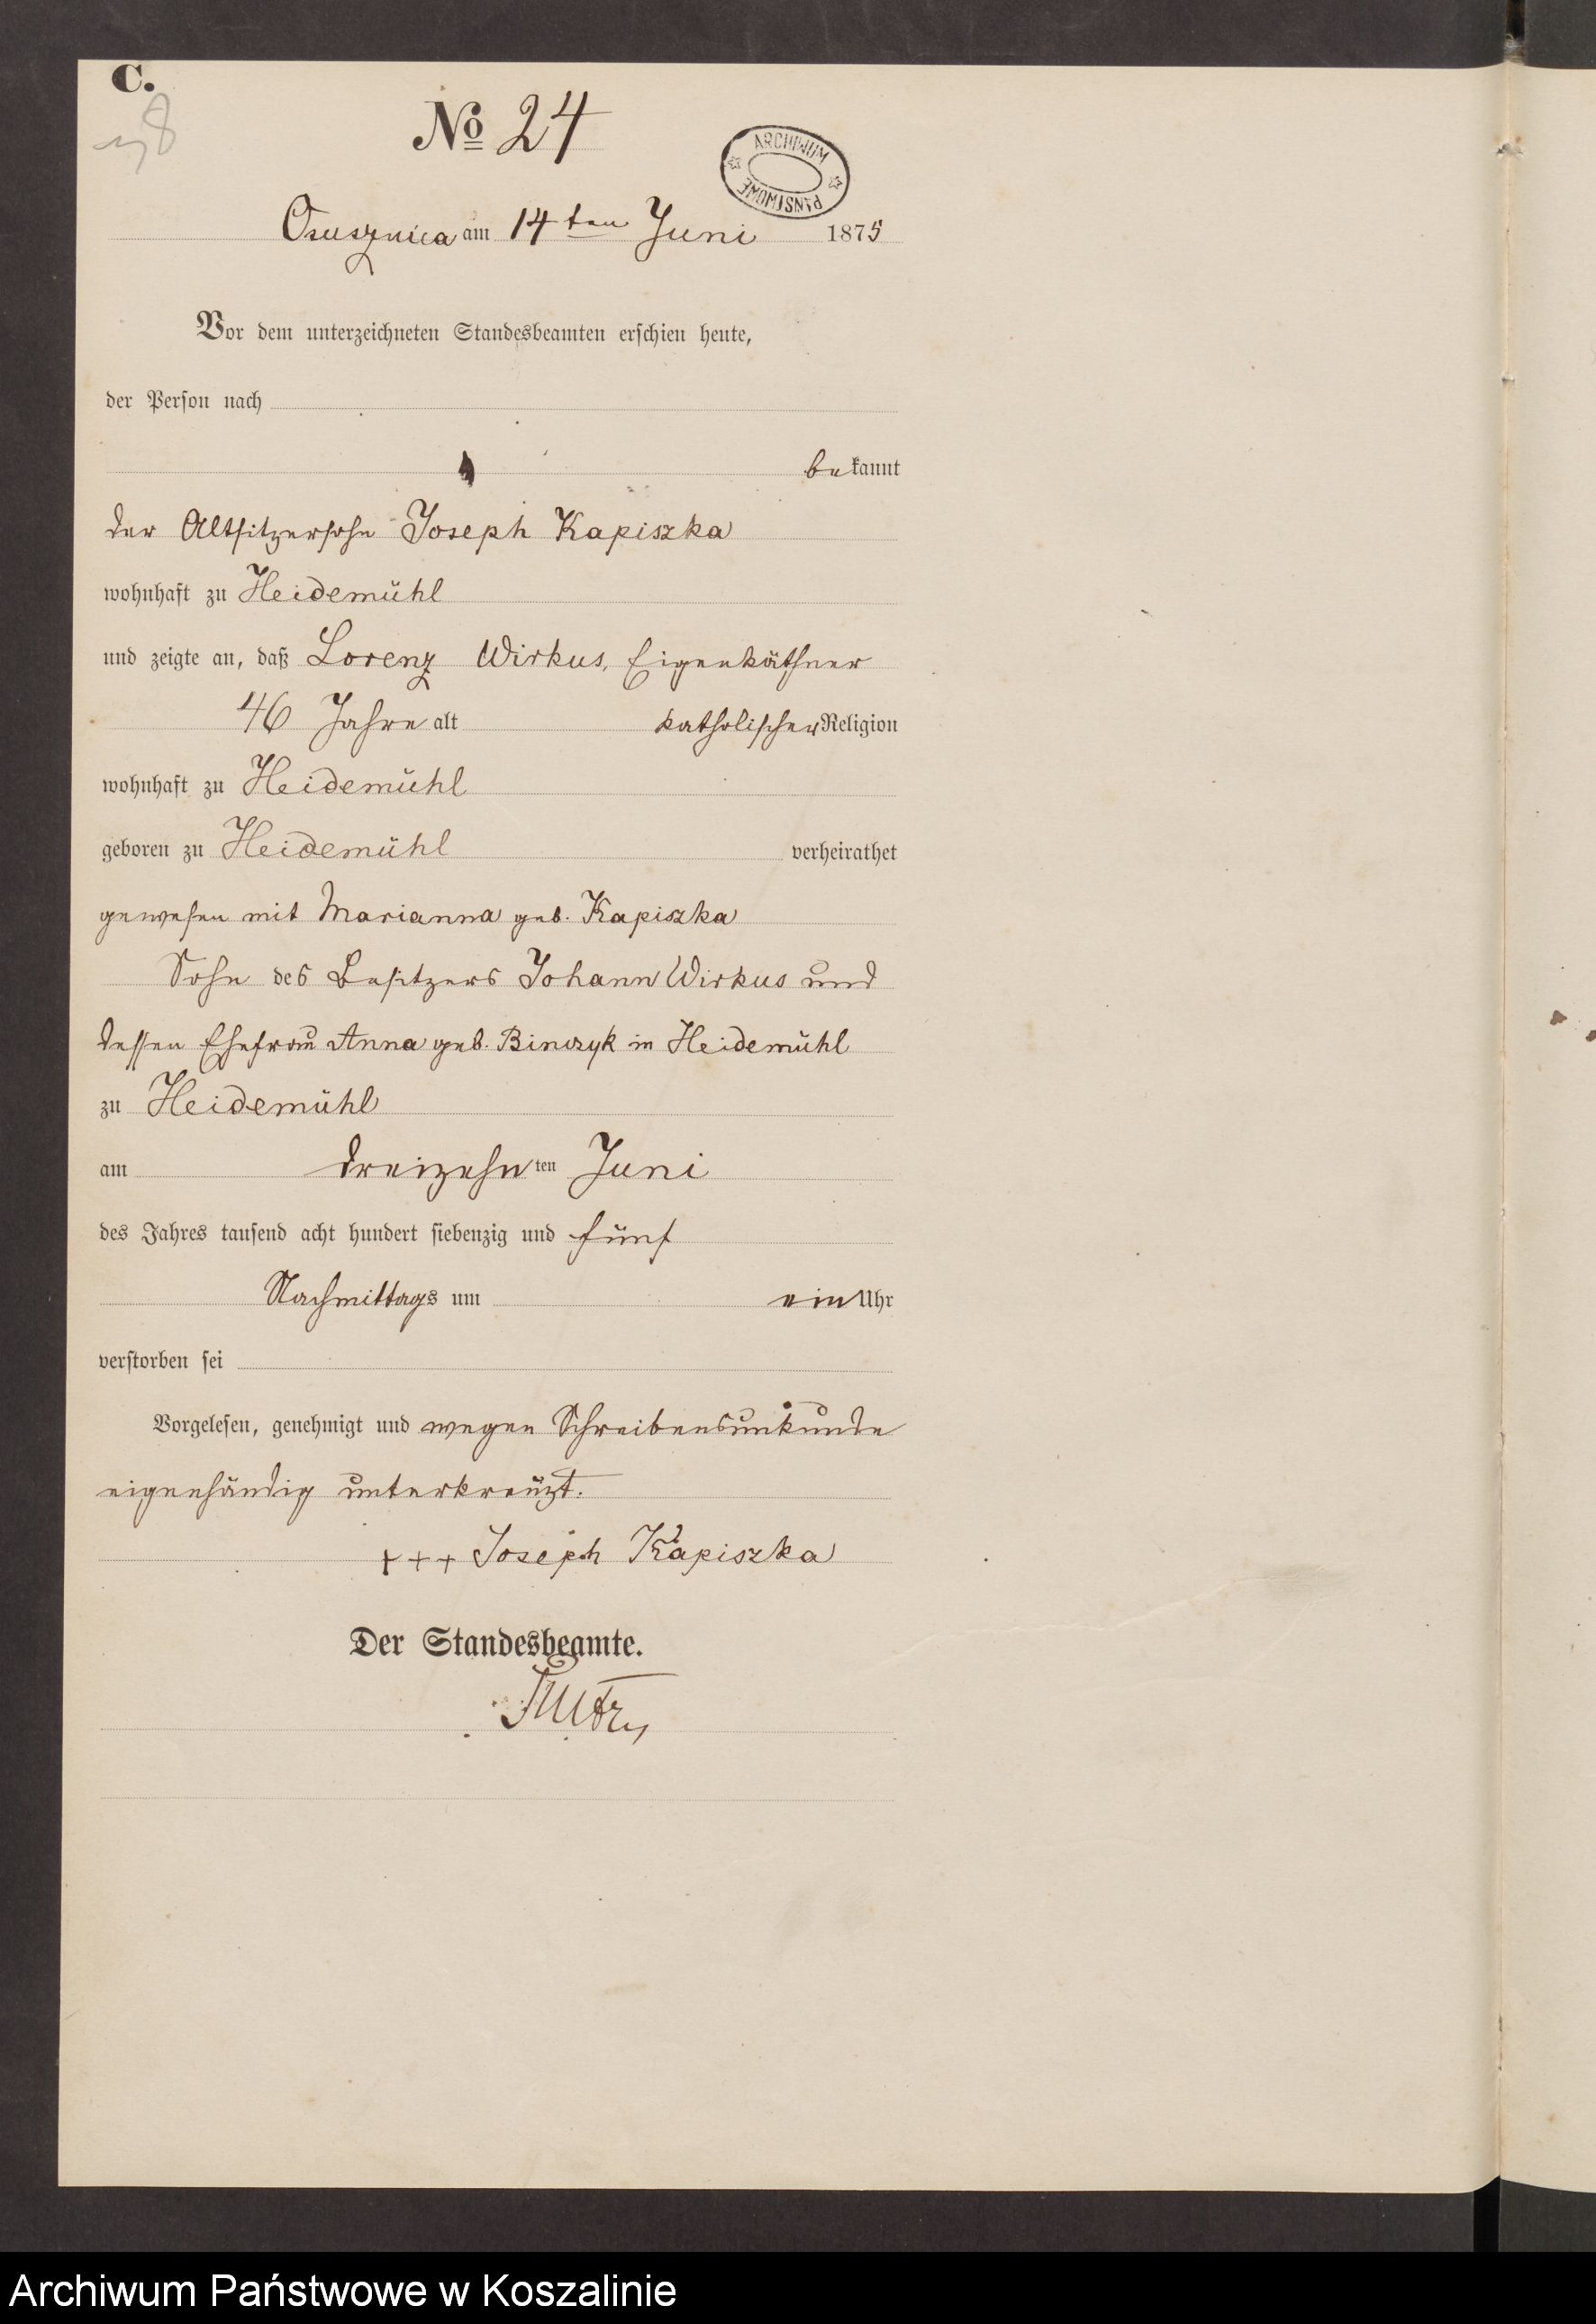 C.
No 24
ARCHIWUM PAŃSTWOWE
Osusznica am 14ten Juni 1875
Vor dem unterzeichneten Standesbeamten erschien heute,
der Person nach
bekannt
der Altsitzersohn Joseph Kapiszka
wohnhaft zu Heidemühl
und zeigte an, daß Lorenz Wirkus, Eigenkäthner
46 Jahre alt katholischer Religion
wohnhaft zu Heidemühl
geboren zu Heidemühl verheirathet
gewesen mit Marianna geb. Kapiszka
Sohn des Besitzers Johann Wirkus und
dessen Ehefrau Anna geb. Binczyk in Heidemühl
zu Heidemühl
am dreizehnten Juni
des Jahres tausend acht hundert siebenzig und fünf
Nachmittags um ein Uhr
verstorben sei
Vorgelesen, genehmigt und wegen Schreibensunkunde
eigenhändig unterkreuzt.
+++ Joseph Kapiszka
Der Standesbeamte.
Archiwum Państwowe w Koszalinie